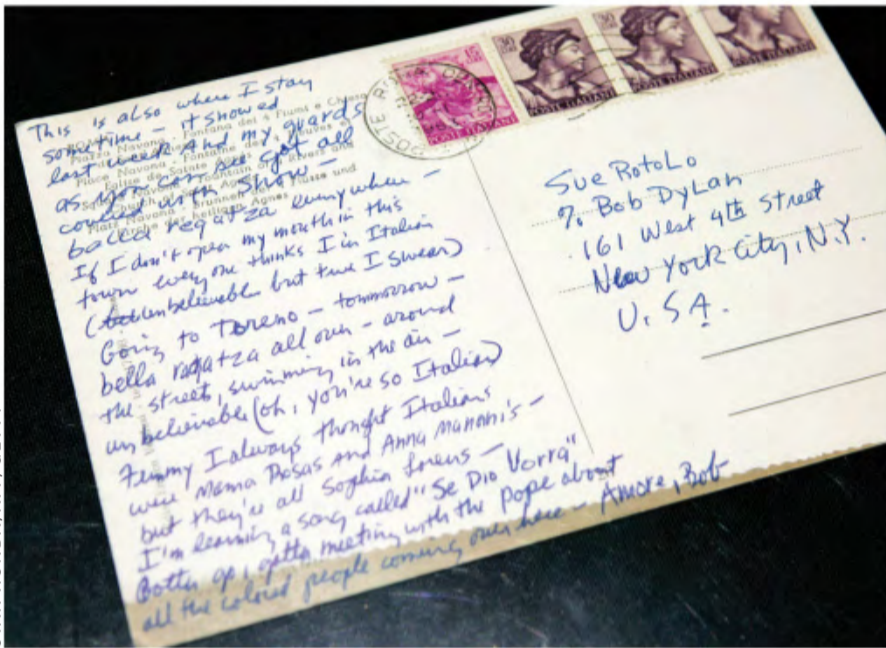 This is also where I stay
sometime - it showed
last week And my guards
as you can see got all
covered with snow -
balla regatza everywhere -
If I don't open my mouth in this
town everyone thinks I in Italian
(unbelievable but true I swear)
Going to Toreno - tommorrow -
bella ragatza all over - around
the street, swimming in the air -
unbelievable (oh, you're so Italian)
Funny I always thought Italians
were Mama Rosas And Anna Mannani's -
but they're all Sophia Lorens -
I'm learning a song called "Se Dio Vorra"
Gotta go, gotta meeting with the Pope about
all the colored people coming over here - Amore, Bob
Piazza Navona - Fontana dei 4 Fiumi e Chiesa
POSTE ITALIANE
POSTE ITALIANE
POSTE ITALIANE
POSTE ITALIANE
Sue RotoLo
% Bob DyLan
161 West 4th Street
New York City, N.Y.
U.S.A.